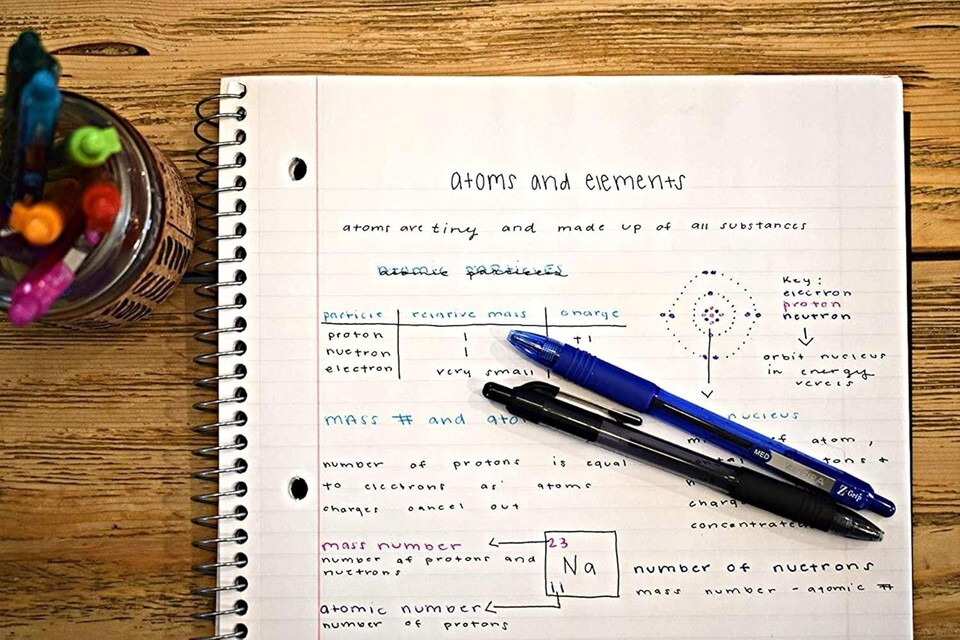 atoms and elements
atoms are tiny and made up of all substances
atomic particles
particle relative mass charge
proton 1 +1
nuetron 1
electron very small
Key:
electron
proton
nuetron
orbit nucleus
in energy
MASS # and
nucleus
of atom,
number of protons is equal
to electrons as atoms
charges cancel out
concentrated
MED
ZEBRA
Z Grip
mass number
number of protons and
nuetrons
23
Na
11
number of nuetrons
mass number - atomic #
atomic number
number of protons